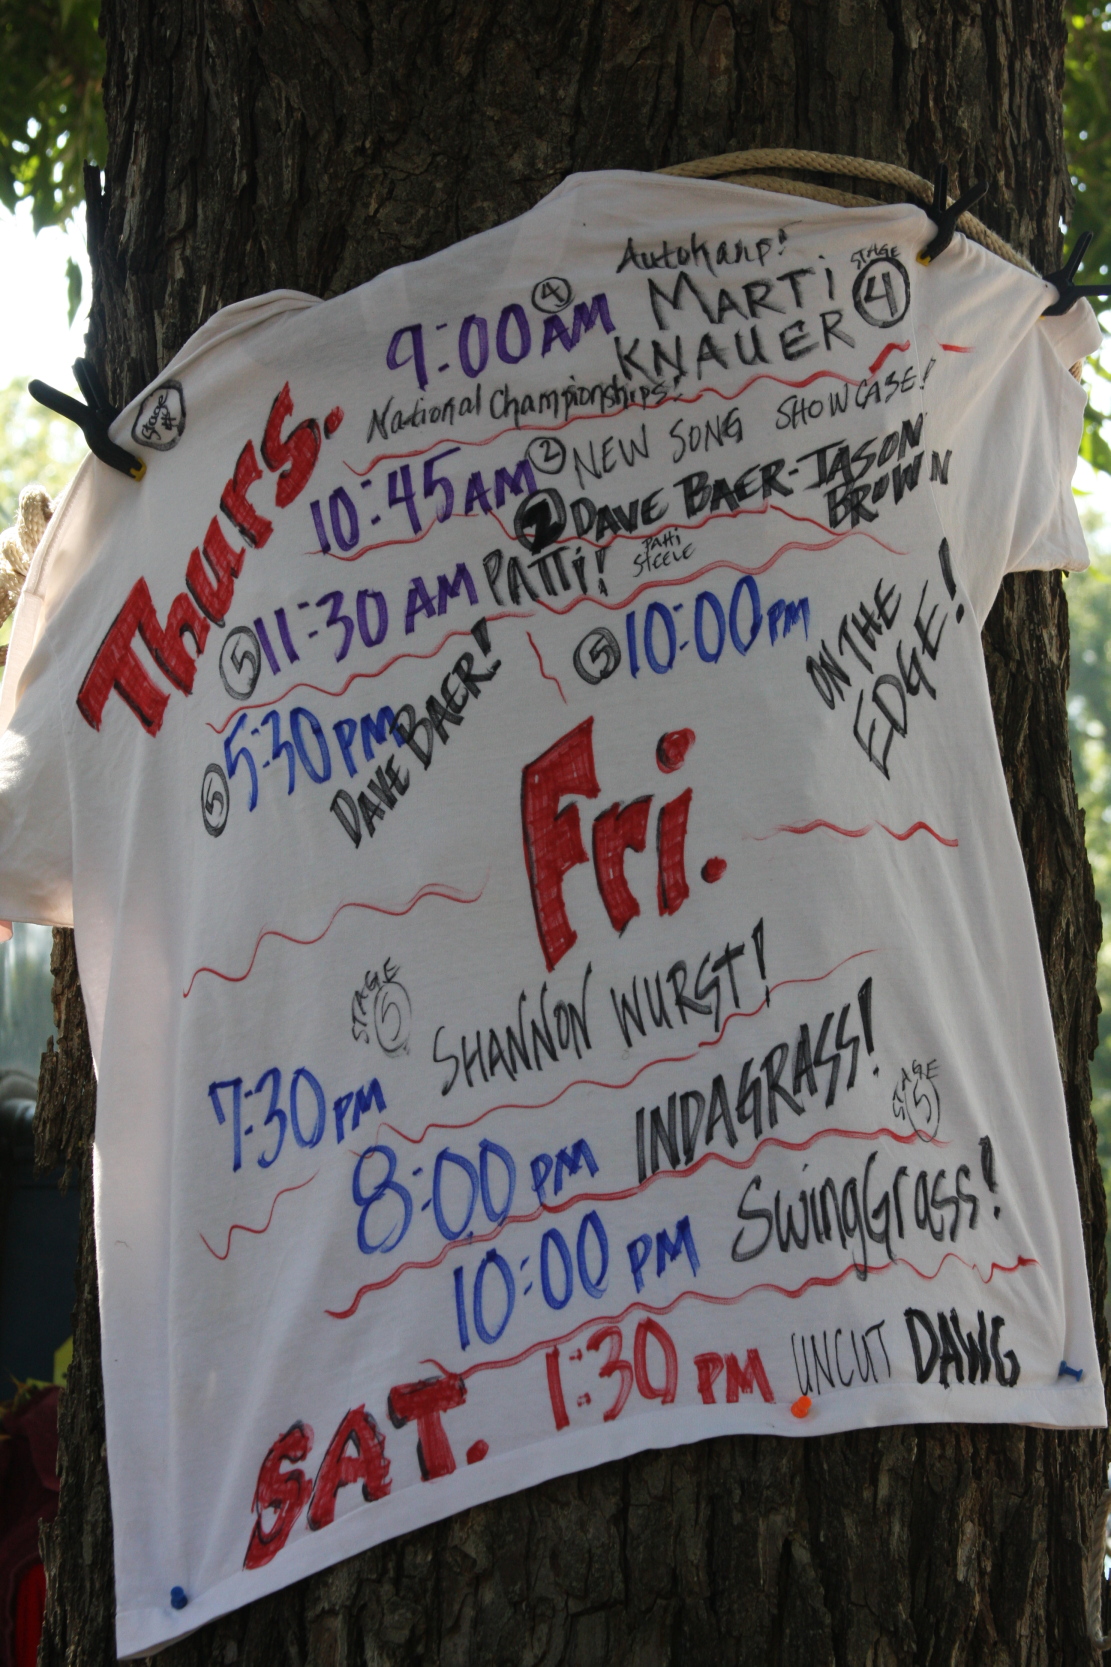 Autoharp!
Stage #
Thurs.
9:00 AM 4 MARTi KNAUER STAGE 4
National Championships!
10:45 AM 2 NEW SONG SHOWCASE!
2 DAVE BAER-JASON BROWN
5 11:30 AM PATTi! PATTi STEELE
5 5:30 PM DAVE BAER!
5 10:00 PM ON THE EDGE!
Fri.
STAGE 5
7:30 PM SHANNON WURST!
8:00 PM INDAGRASS!
STAGE 5
10:00 PM SwingGrass!
SAT. 1:30 PM UNCUT DAWG